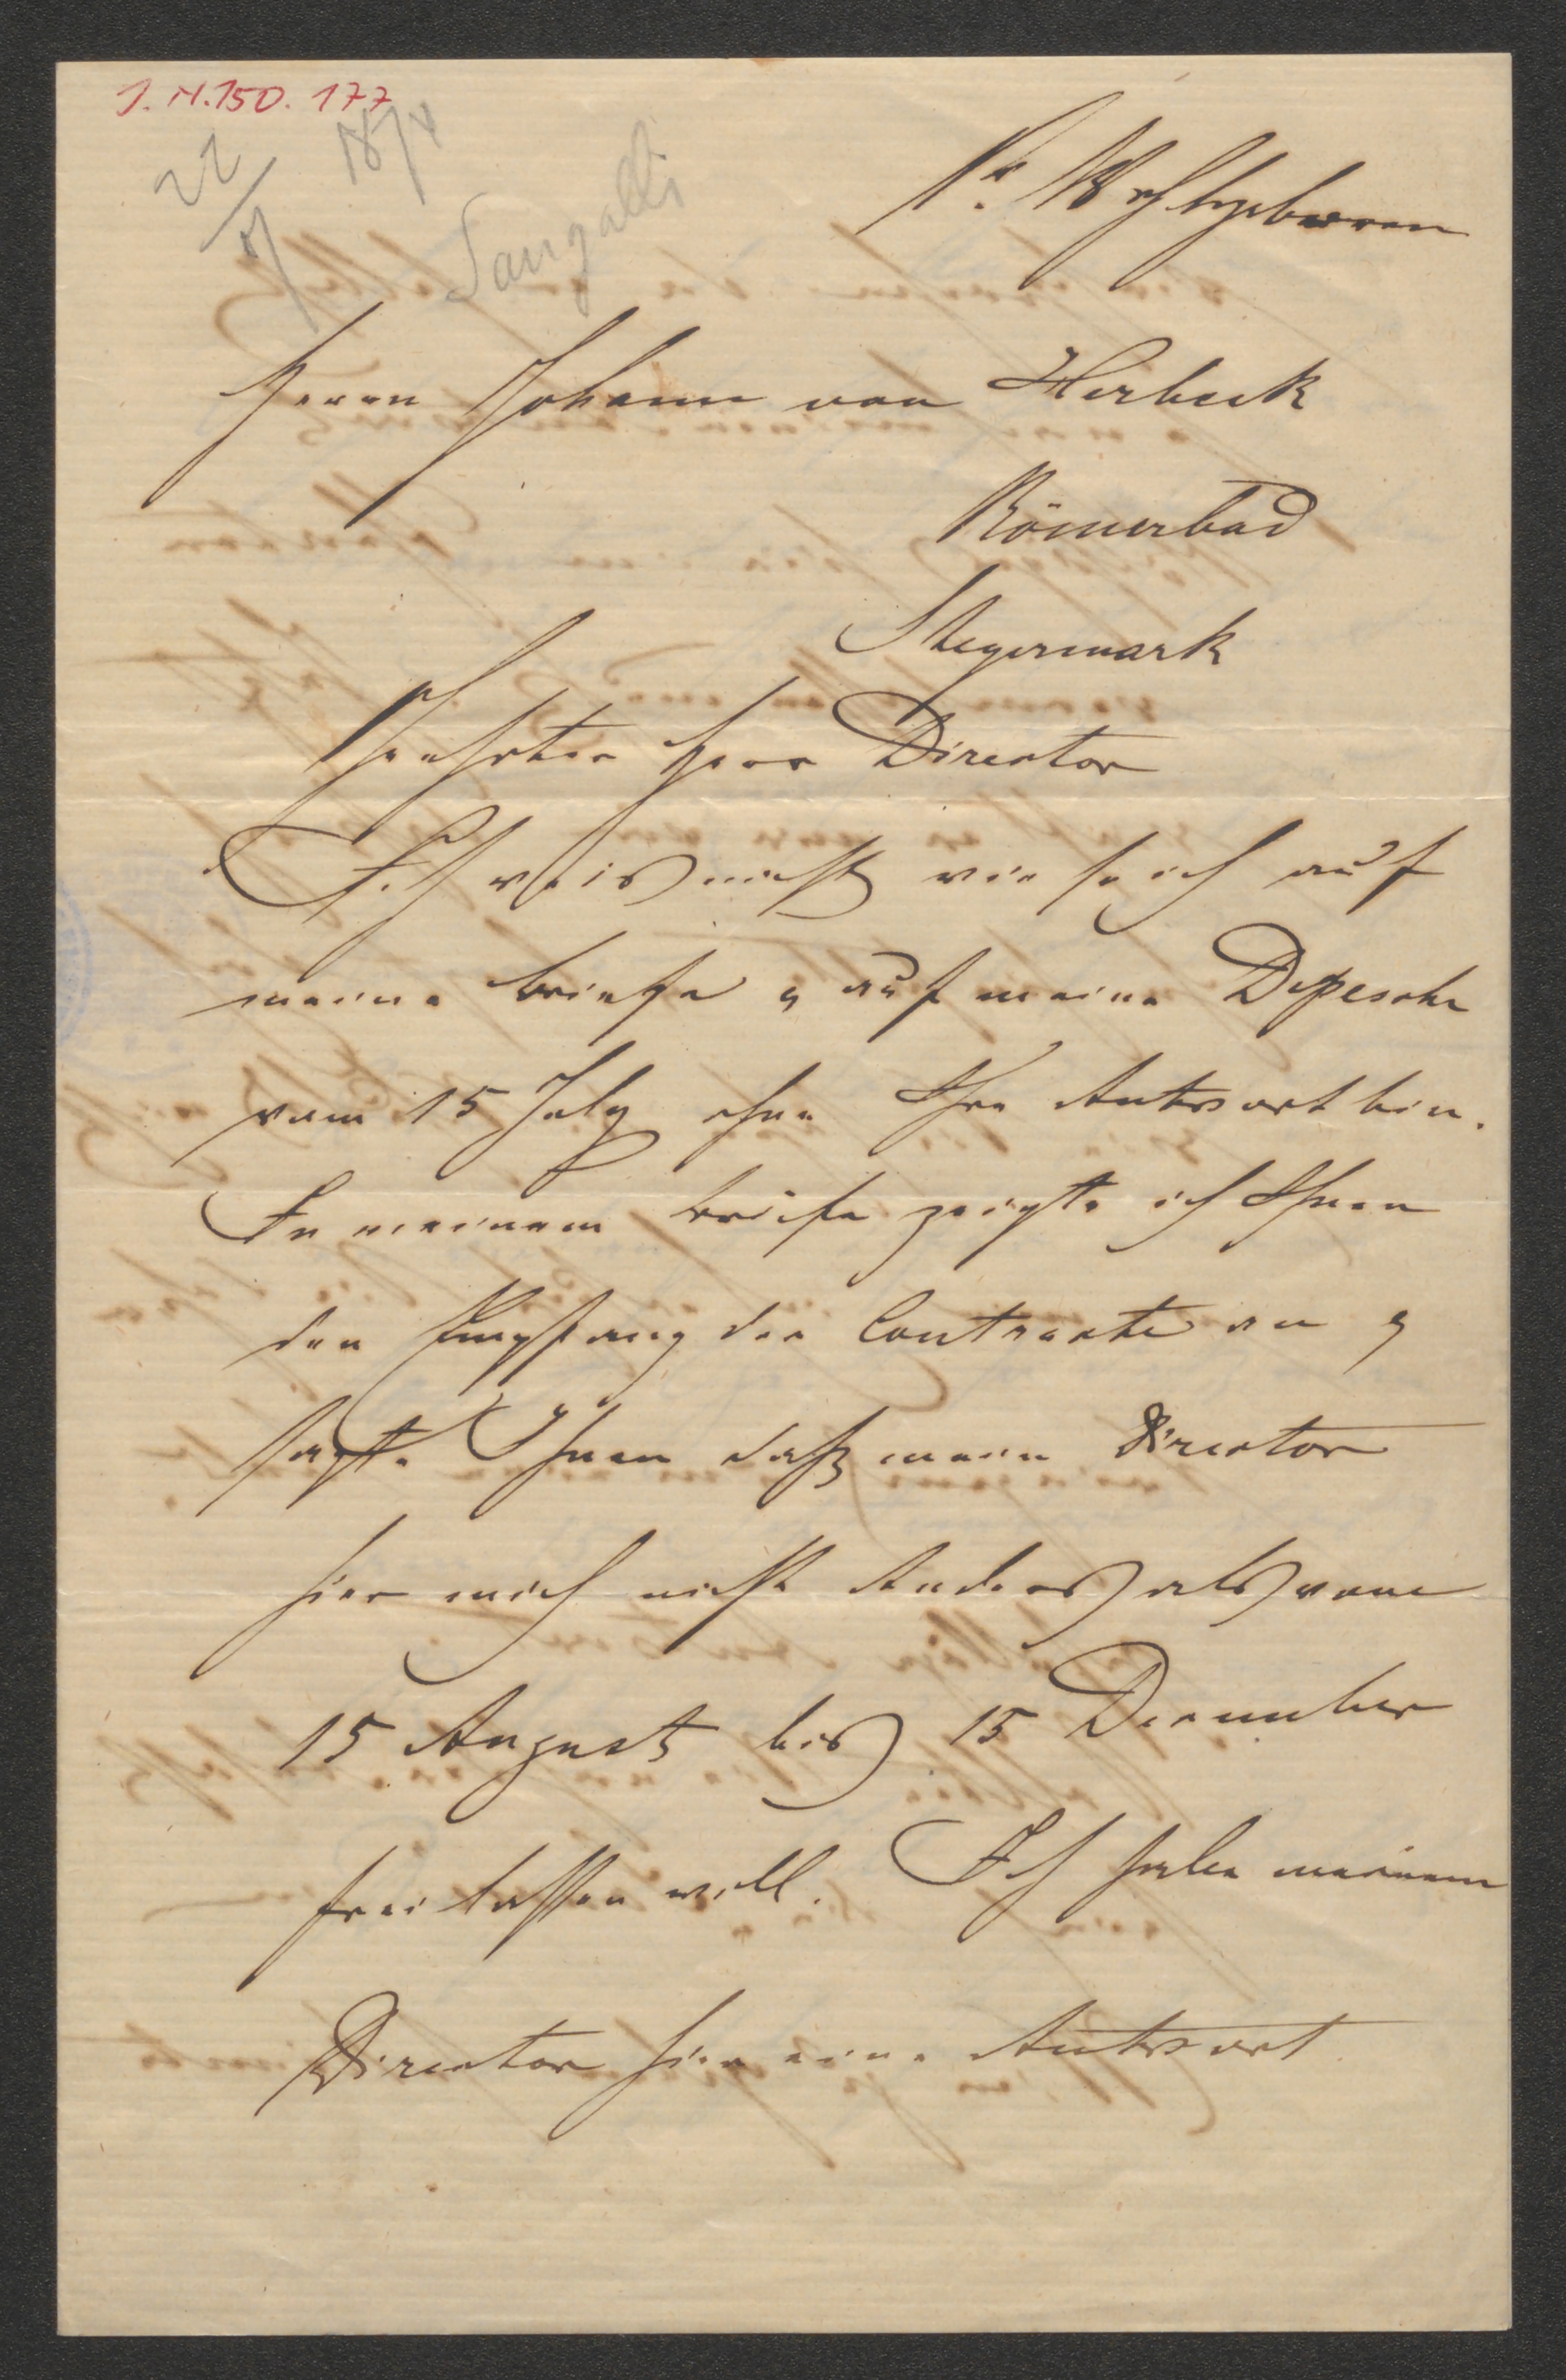 J. N. 150. 177
22/7 1874
Sangalli
Sr. Wohlgeboren
Herrn Johann von Herbeck
Römerbad
Steyermark
Geehrter Herr Director
Ich weis nicht wie so ich auf
meine Briefe u auf meine Depesche
vom 15 July ohne Ihre Antwort bin.
In meinem Briefe zeigte ich Ihnen
den Empfang der Contracte an u
sagte Ihnen daß mein Director
hier mich nicht Anders als vom
15 August bis 15 December
frei lassen will. Ich habe meinem
Director hier eine Antwort